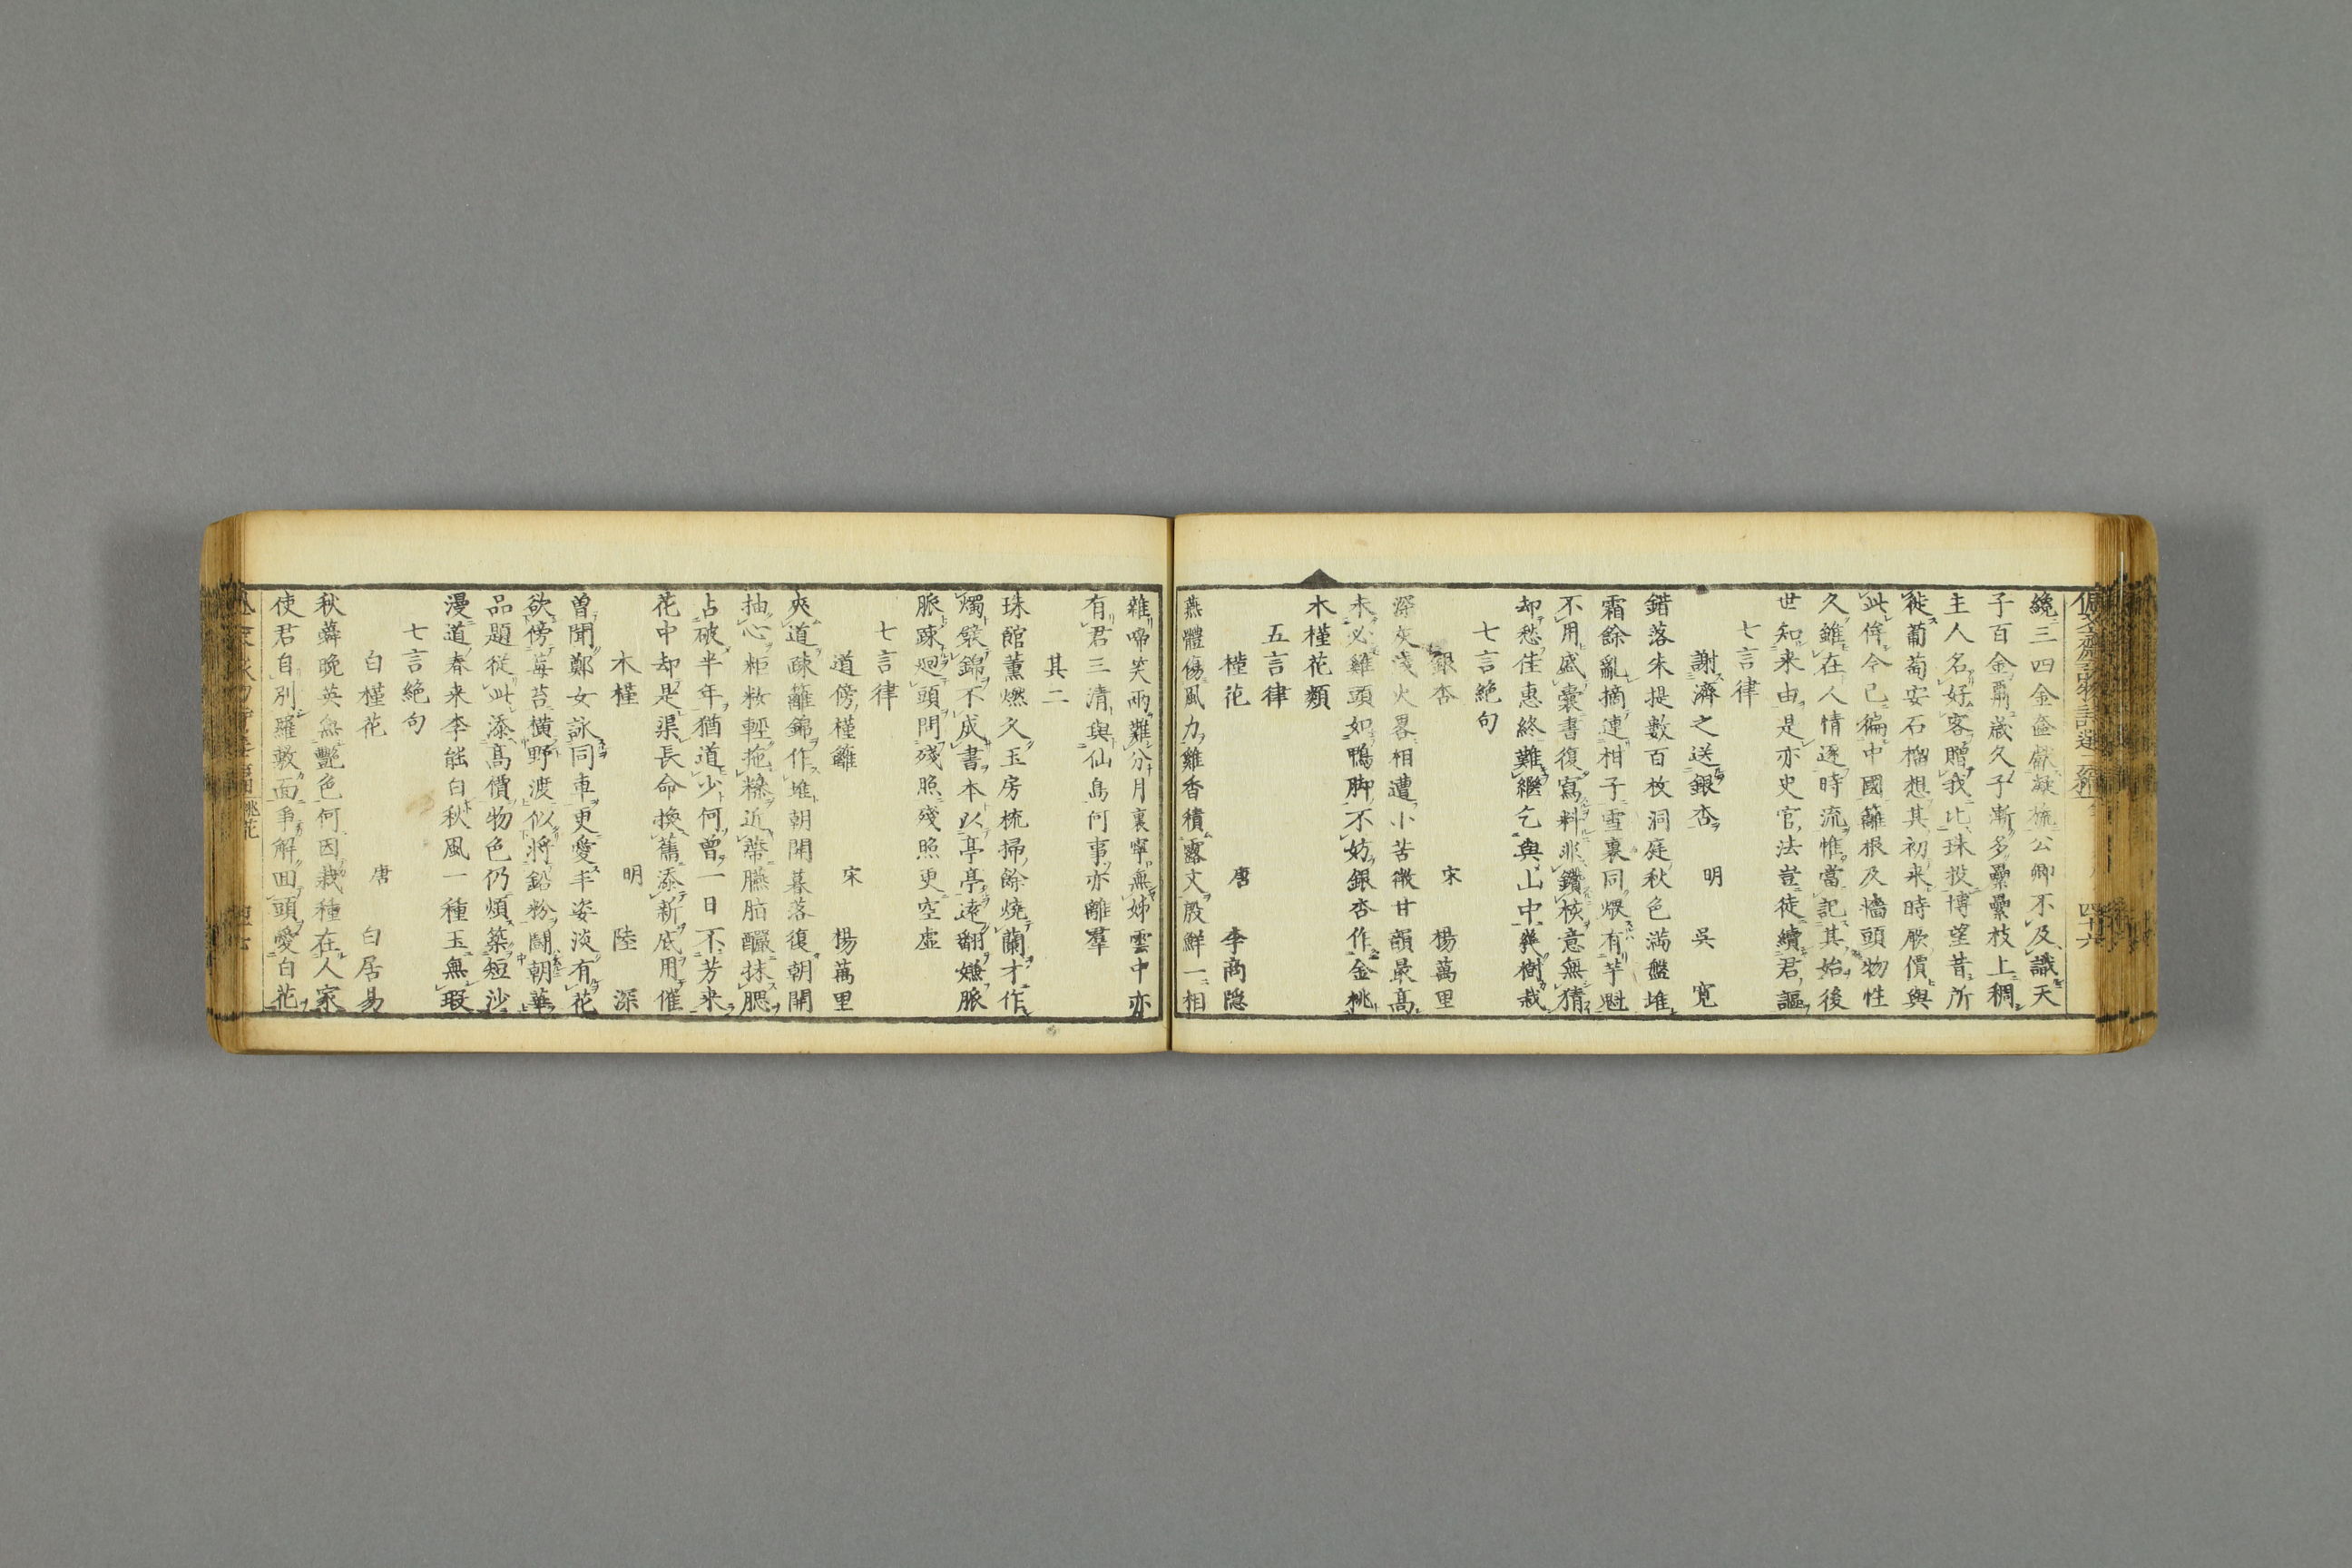 佩文齋詠物詩選
四十六
纔三四金奩獻凝旒公卿不及識天
子百金酬歲久子漸多纍纍枝上稠
主人名好客贈我比珠投博望昔所
徙葡萄安石榴想其初来時厥價與
此侔今已徧中國籬根及墻頭物性
久雖在人情逐時流惟當記其始後
世知来由是亦史官法豈徒續君謳
七言律
謝濟之送銀杏 明 吳寬
錯落朱提數百枚洞庭秋色満盤堆
霜餘亂摘連柑子雪裏同煨有芋魁
不用盛囊書復寫料非鑽核意無猜
却愁佳惠終難繼乞與山中幾樹栽
七言絶句
銀杏 宋 楊萬里
深灰淺火畧相遭小苦微甘韻最高
未必雞頭如鴨脚不妨銀杏作金桃
木槿花類
五言律
槿花 唐 李商隠
燕體傷風力雞香積露文殷鮮一相
雜啼笑兩難分月裏寧無姊雲中亦
有君三清與仙島何事亦離羣
其二
珠館薰燃久玉房梳掃餘燒蘭才作
燭襞錦不成書本以亭亭遠翻嫌脈
脈疎廻頭問殘照殘照更空虚
七言律
道傍槿籬 宋 楊萬里
夾道疎籬錦作堆朝開暮落復朝開
抽心粔籹輕拖糝近蒂臙脂釅抹腮
占破半年猶道少何曽一日不芳来
花中却是渠長命換舊添新底用催
木槿 明 陸深
曽聞鄭女詠同車更愛丰姿淡有花
欲傍苺苔橫野渡似將鉛粉鬪朝華
品題従此添髙價物色仍煩築短沙
漫道春来李能白秋風一種玉無瑕
七言絶句
白槿花 唐 白居易
秋蕣晩英無艷色何因栽種在人家
使君自別羅敷面爭解囬頭愛白花